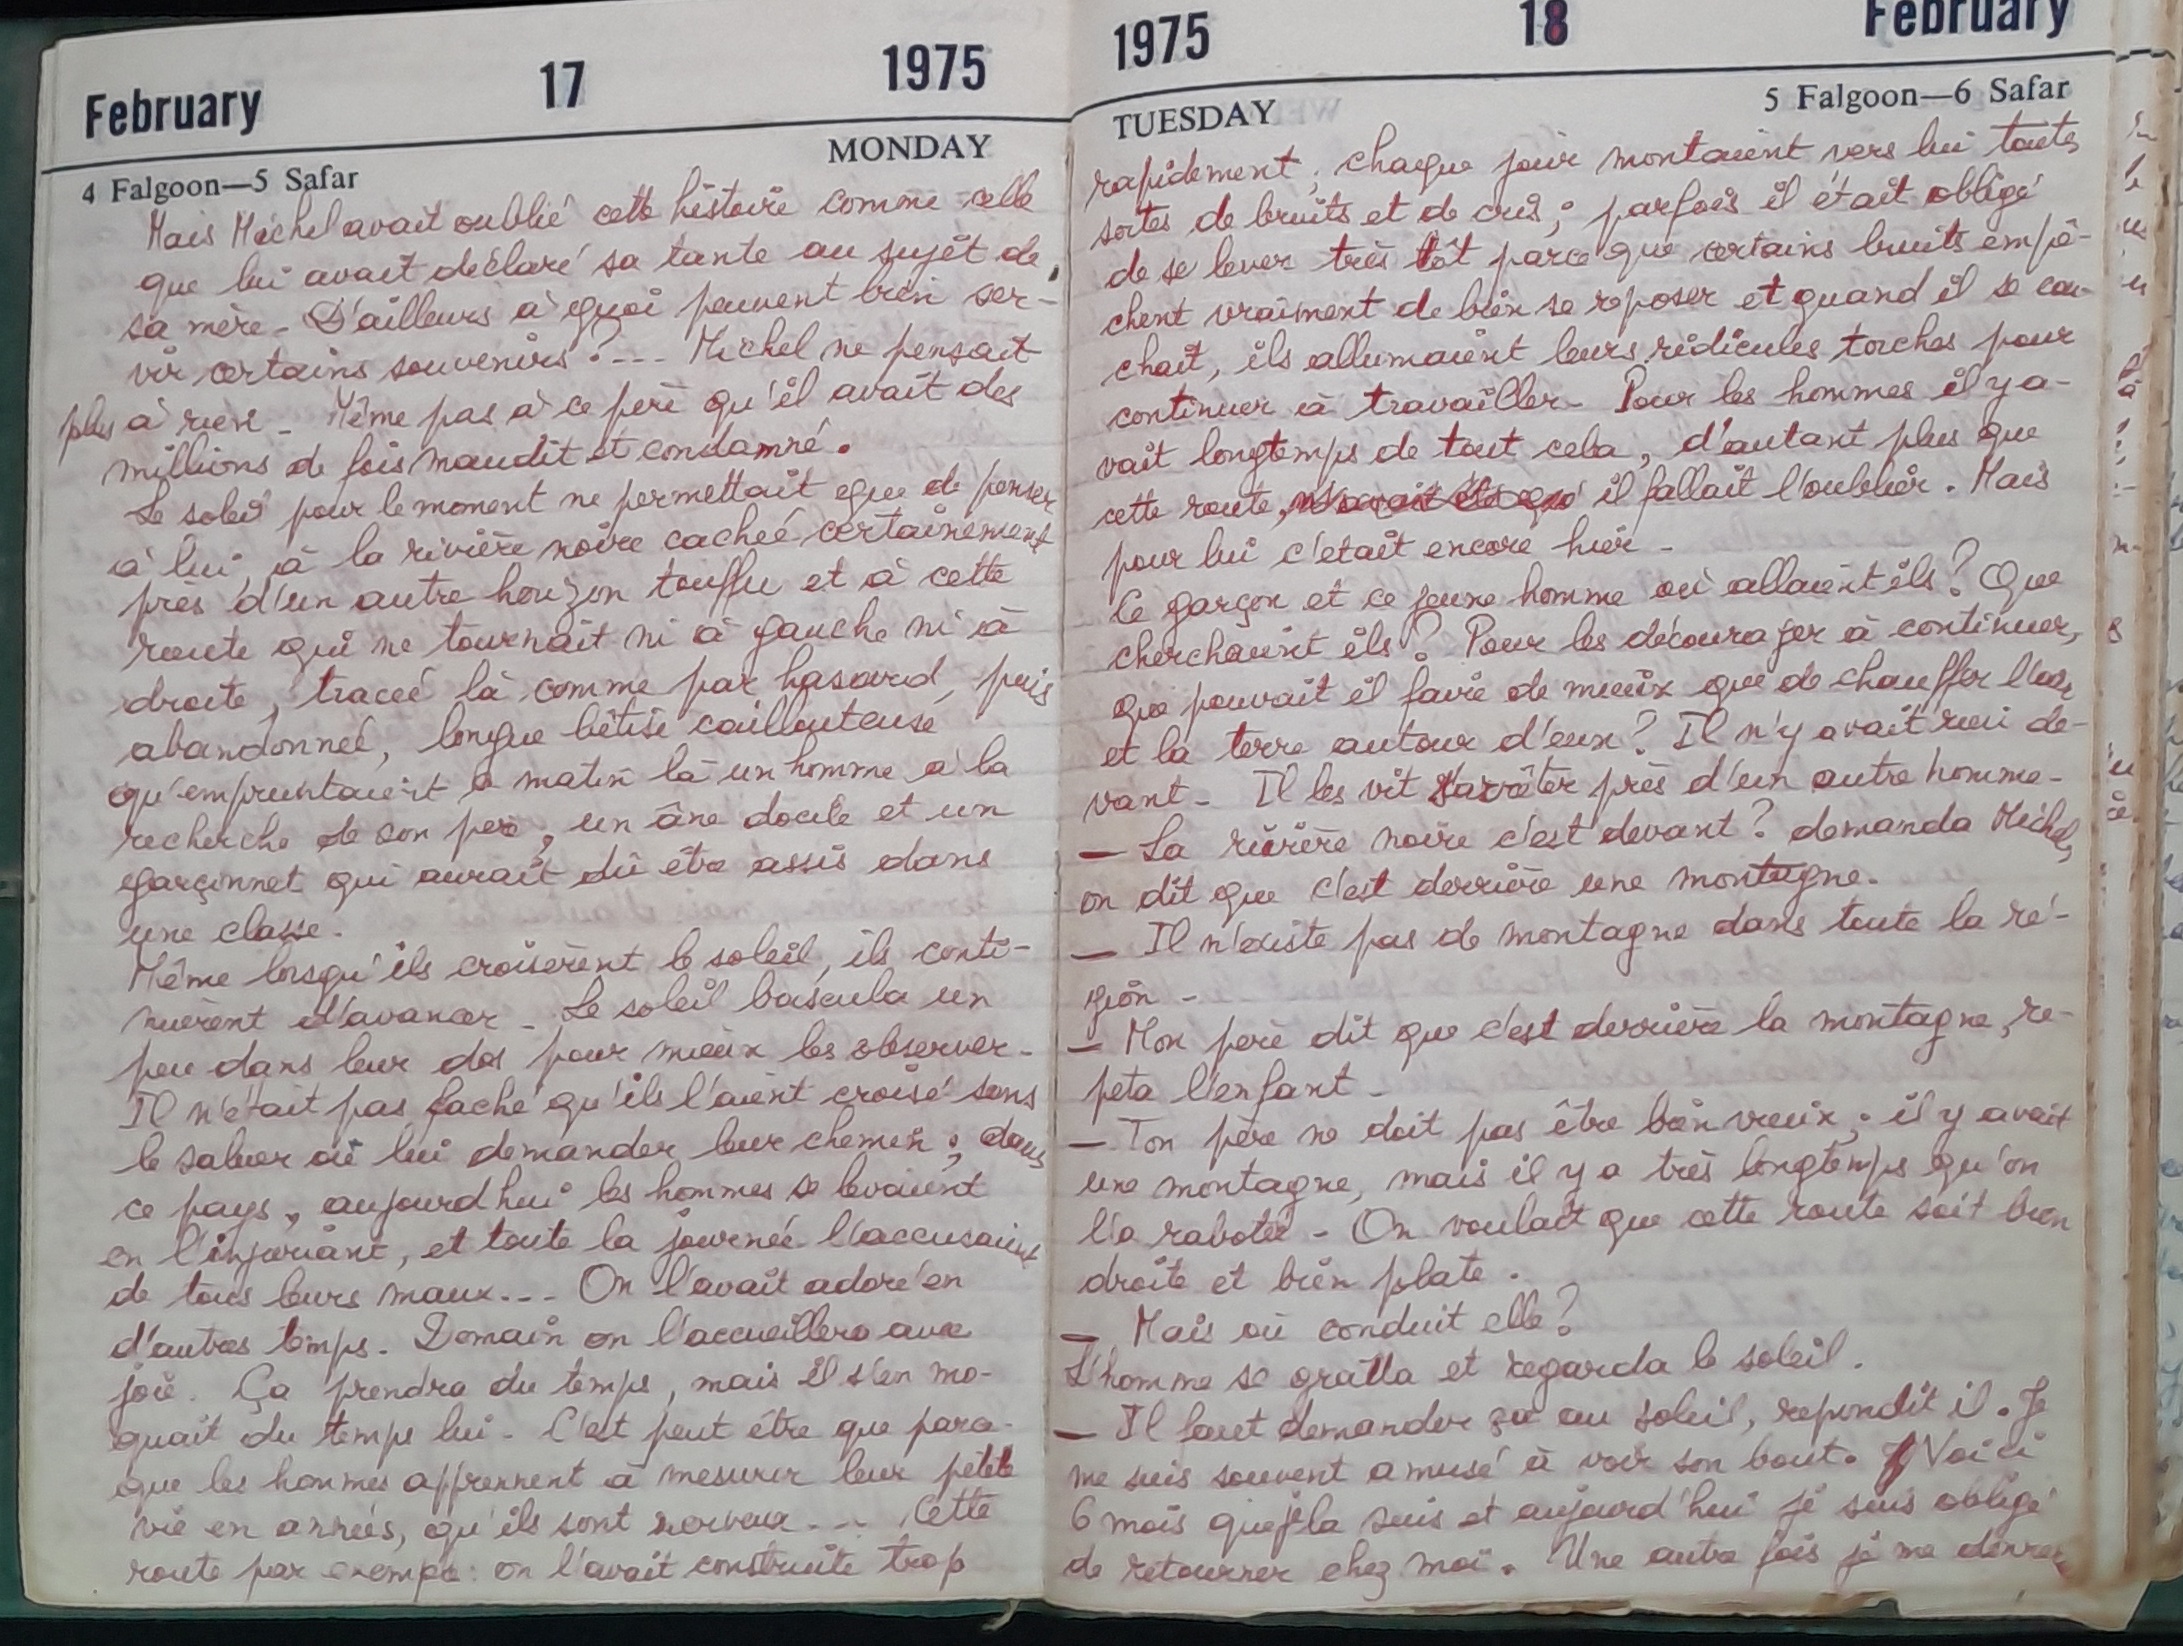 February 17 1975
MONDAY
4 Falgoon—5 Safar
Mais Michel avait oublié cette histoire comme celle
que lui avait déclaré sa tante au sujet de
sa mère - D'ailleurs à quoi peuvent bien ser-
vir certains souvenirs ? --- Michel ne pensait
plus à rien - Même pas à ce père qu'il avait des
millions de fois maudit et condamné.
Le soleil pour le moment ne permettait que de penser
à lui, à la rivière noire cachée certainement
près d'un autre horizon touffu et à cette
route qui ne tournait ni à gauche ni à
droite, tracée là comme par hasard, puis
abandonnée, longue bêtise caillouteuse
qu'empruntaient ce matin là un homme à la
recherche de son père, un âne docile et un
garçonnet qui aurait dû être assis dans
une classe.
Même lorsqu'ils croisèrent le soleil, ils conti-
nuèrent d'avancer - Le soleil bascula un
peu dans leur dos pour mieux les observer -
Il n'était pas faché qu'ils l'aient croisé sans
le saluer où lui demander leur chemin ; dans
ce pays, aujourd'hui les hommes se levaient
en l'injuriant, et toute la journée l'accusaient
de tous leurs maux --- On l'avait adoré en
d'autres temps. Demain on l'accueillera avec
joie. Ça prendra du temps, mais il s'en mo-
quait du temps lui - C'est peut être que parce
que les hommes apprennent à mesurer leur petite
vie en années, qu'ils sont nerveux --- Cette
route par exemple : on l'avait construite trop
1975 18 February
TUESDAY
5 Falgoon—6 Safar
rapidement ; chaque jour montaient vers lui toutes
sortes de bruits et de cris ; parfois il était obligé
de se lever très tôt parce que certains bruits empê-
chent vraiment de bien se reposer et quand il se cou-
chait, ils allumaient leurs ridicules torches pour
continuer à travailler - Pour les hommes il y a-
vait longtemps de tout cela, d'autant plus que
cette route, il fallait l'oublier. Mais
pour lui c'etait encore hier -
Ce garçon et ce jeune homme où allaient ils ? Que
cherchaient ils ? Pour les décourager à continuer,
que pouvait il faire de mieux que de chauffer l'air
et la terre autour d'eux ? Il n'y avait rien de-
vant - Il les vit s'arrêter près d'un autre homme -
— La rivière noire c'est devant ? demanda Michel,
on dit que c'est derrière une montagne.
— Il n'existe pas de montagne dans toute la ré-
gion -
— Mon père dit que c'est derrière la montagne, re-
peta l'enfant -
— Ton père ne doit pas être bien vieux ; il y avait
une montagne, mais il y a très longtemps qu'on
l'a rabotée - On voulait que cette route soit bien
droite et bien plate.
— Mais où conduit elle ?
L'homme se gratta et regarda le soleil.
— Il faut demander ça au soleil, repondit il. Je
me suis souvent amusé à voir son bout. Voici
6 mois que je la suis et aujourd'hui je suis obligé
de retourner chez moi. Une autre fois je me